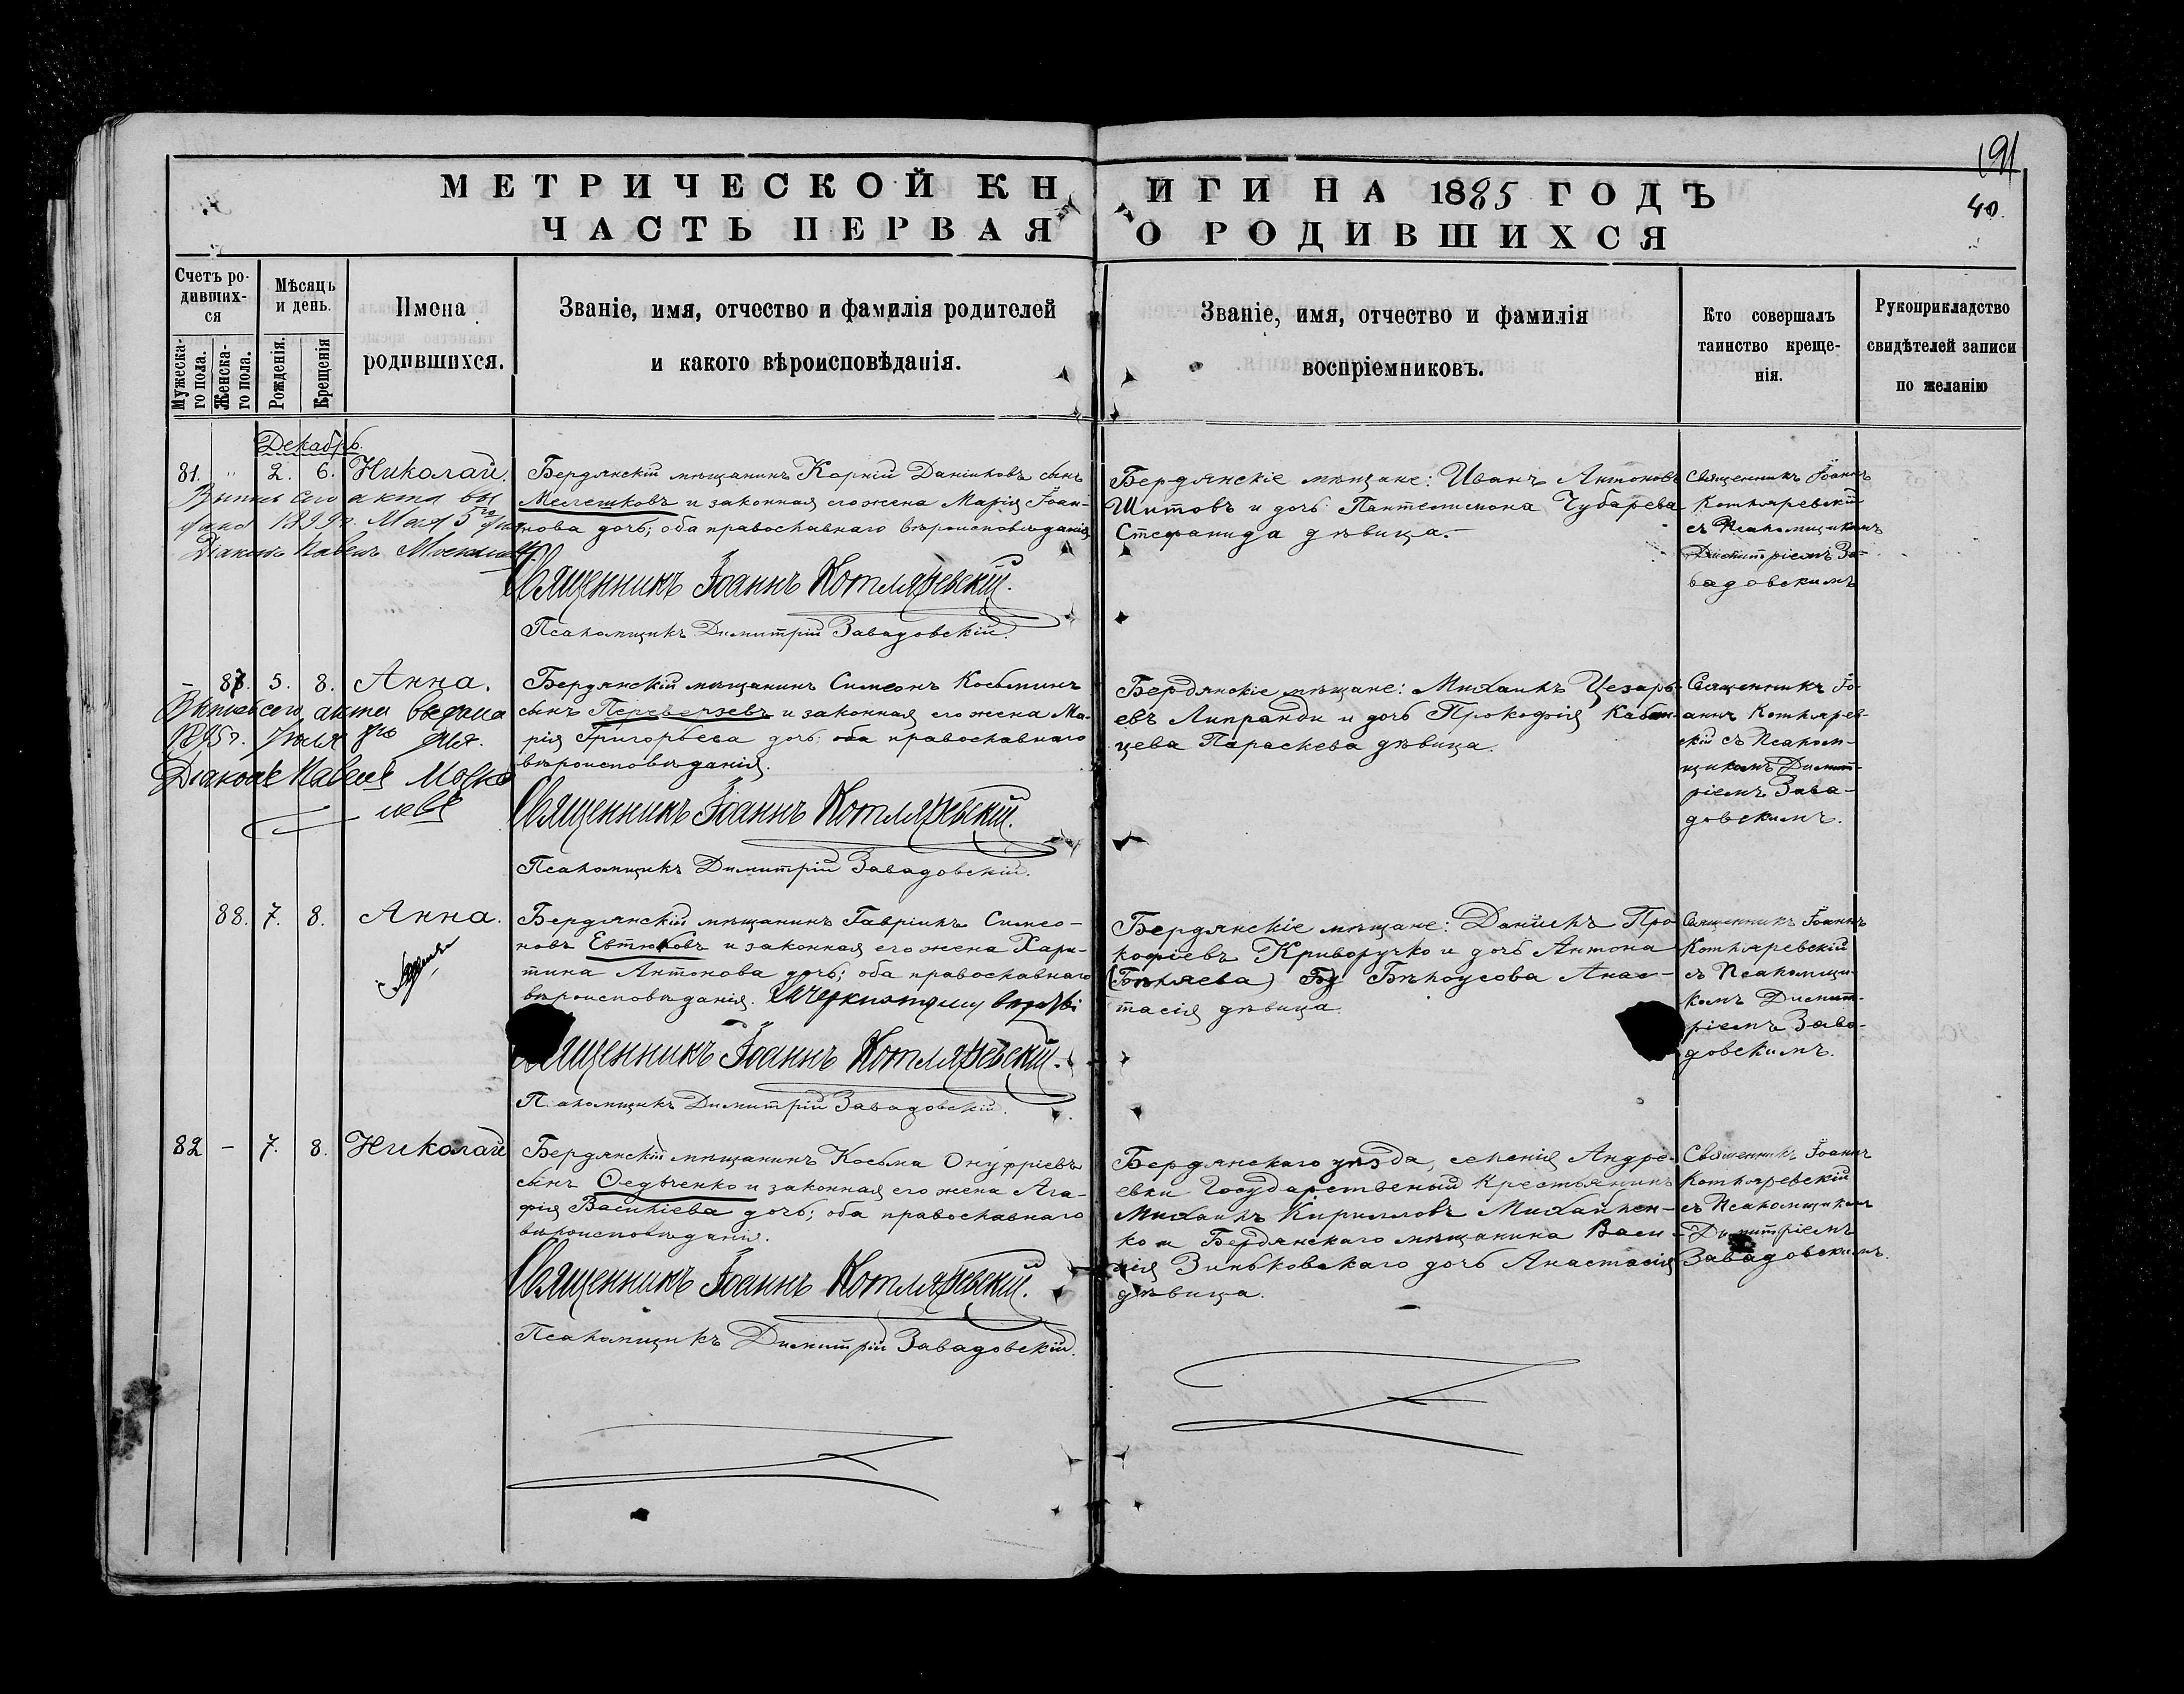 191
МЕТРИЧЕСКОЙ КНИГИ НА 1885 ГОДЪ
40.
ЧАСТЬ ПЕРВАЯ О РОДИВШИХСЯ
Счетъ ро-
дивших-
ся
Мужеска-
го пола.
Женска-
го пола.
Мѣсяцъ
и день.
Рожденія.
Крещенія
Имена
родившихся.
Званіе, имя, отчество и фамилія родителей
и какого вѣроисповѣданія.
Званіе, имя, отчество и фамилія
воспріемниковъ.
Кто совершалъ
таинство креще-
нія.
Рукоприкладство
свидѣтелей записи
по желанію
Декабрь.
81. " 2. 6. Николай.
Бердянскій мѣщанинъ Корній Даніиловъ сынъ
Мелешковъ и законная его жена Марія Іоан-
нова дочь; оба православнаго вѣроисповѣданія
Священникъ Іоаннъ Котляревскій.
Псаломщикъ Димитрій Завадовскій.
Бердянскіе мѣщане: Иванъ Антоновъ
Шитовъ и дочь Пантелеимона Чубарева
Стефанида дѣвица.
Священникъ Іоаннъ
Котляревскій
съ Псаломщикомъ
Димитріемъ За-
вадовскимъ
– 87. 5. 8. Анна.
сего акта выдана
1895г. Іюля
Діаконъ Павелъ
Бердянскій мѣщанинъ Симеонъ Косьминъ
сынъ Переверзевъ и законная его жена Ма-
рія Григорьева дочь; оба православнаго
вѣроисповѣданія.
Священникъ Іоаннъ Котляревскій.
Псаломщикъ Димитрій Завадовскій.
Бердянскіе мѣщане: Михаилъ Цезарь-
евъ Липранди и дочь Прокофія Кабан-
цева Параскева дѣвица.
Священникъ Іо-
аннъ Котлярев-
скій съ Псалом-
щикомъ Димит-
ріемъ Зава-
довскимъ.
88. 7. 8. Анна.
Бердянскій мѣщанинъ Гавріилъ Симео-
новъ Евтюковъ и законная его жена Хари-
тина Антонова дочь; оба православнаго
вѣроисповѣданія.
Священникъ Іоаннъ Котляревскій.
Псаломщикъ Димитрій Завадовскій.
Бердянскіе мѣщане: Даніилъ Про-
кофіевъ Криворучко и дочь Антона
Бѣлоусова Анас-
тасія дѣвица.
Священникъ Іоаннъ
Котляревскій
съ Псаломщи-
комъ Димит-
ріемъ Зава-
довскимъ.
82 – 7. 8. Николай
Бердянскій мѣщанинъ Косьма Онуфріевъ
сынъ Федьченко и законная его жена Ага-
фія Василіева дочь; оба православнаго
вѣроисповѣданія.
Священникъ Іоаннъ Котляревскій.
Псаломщикъ Димитрій Завадовскій.
Бердянскаго уѣзда, селенія Андре-
евки Государственный Крестьянинъ
Михаилъ Кирилловъ Михайлен-
ко и Бердянскаго мѣщанина Васи-
лія Зиньковскаго дочь Анастасія
дѣвица.
Священникъ Іоаннъ
Котляревскій
съ Псаломщикомъ
Димитріемъ
Завадовскимъ.